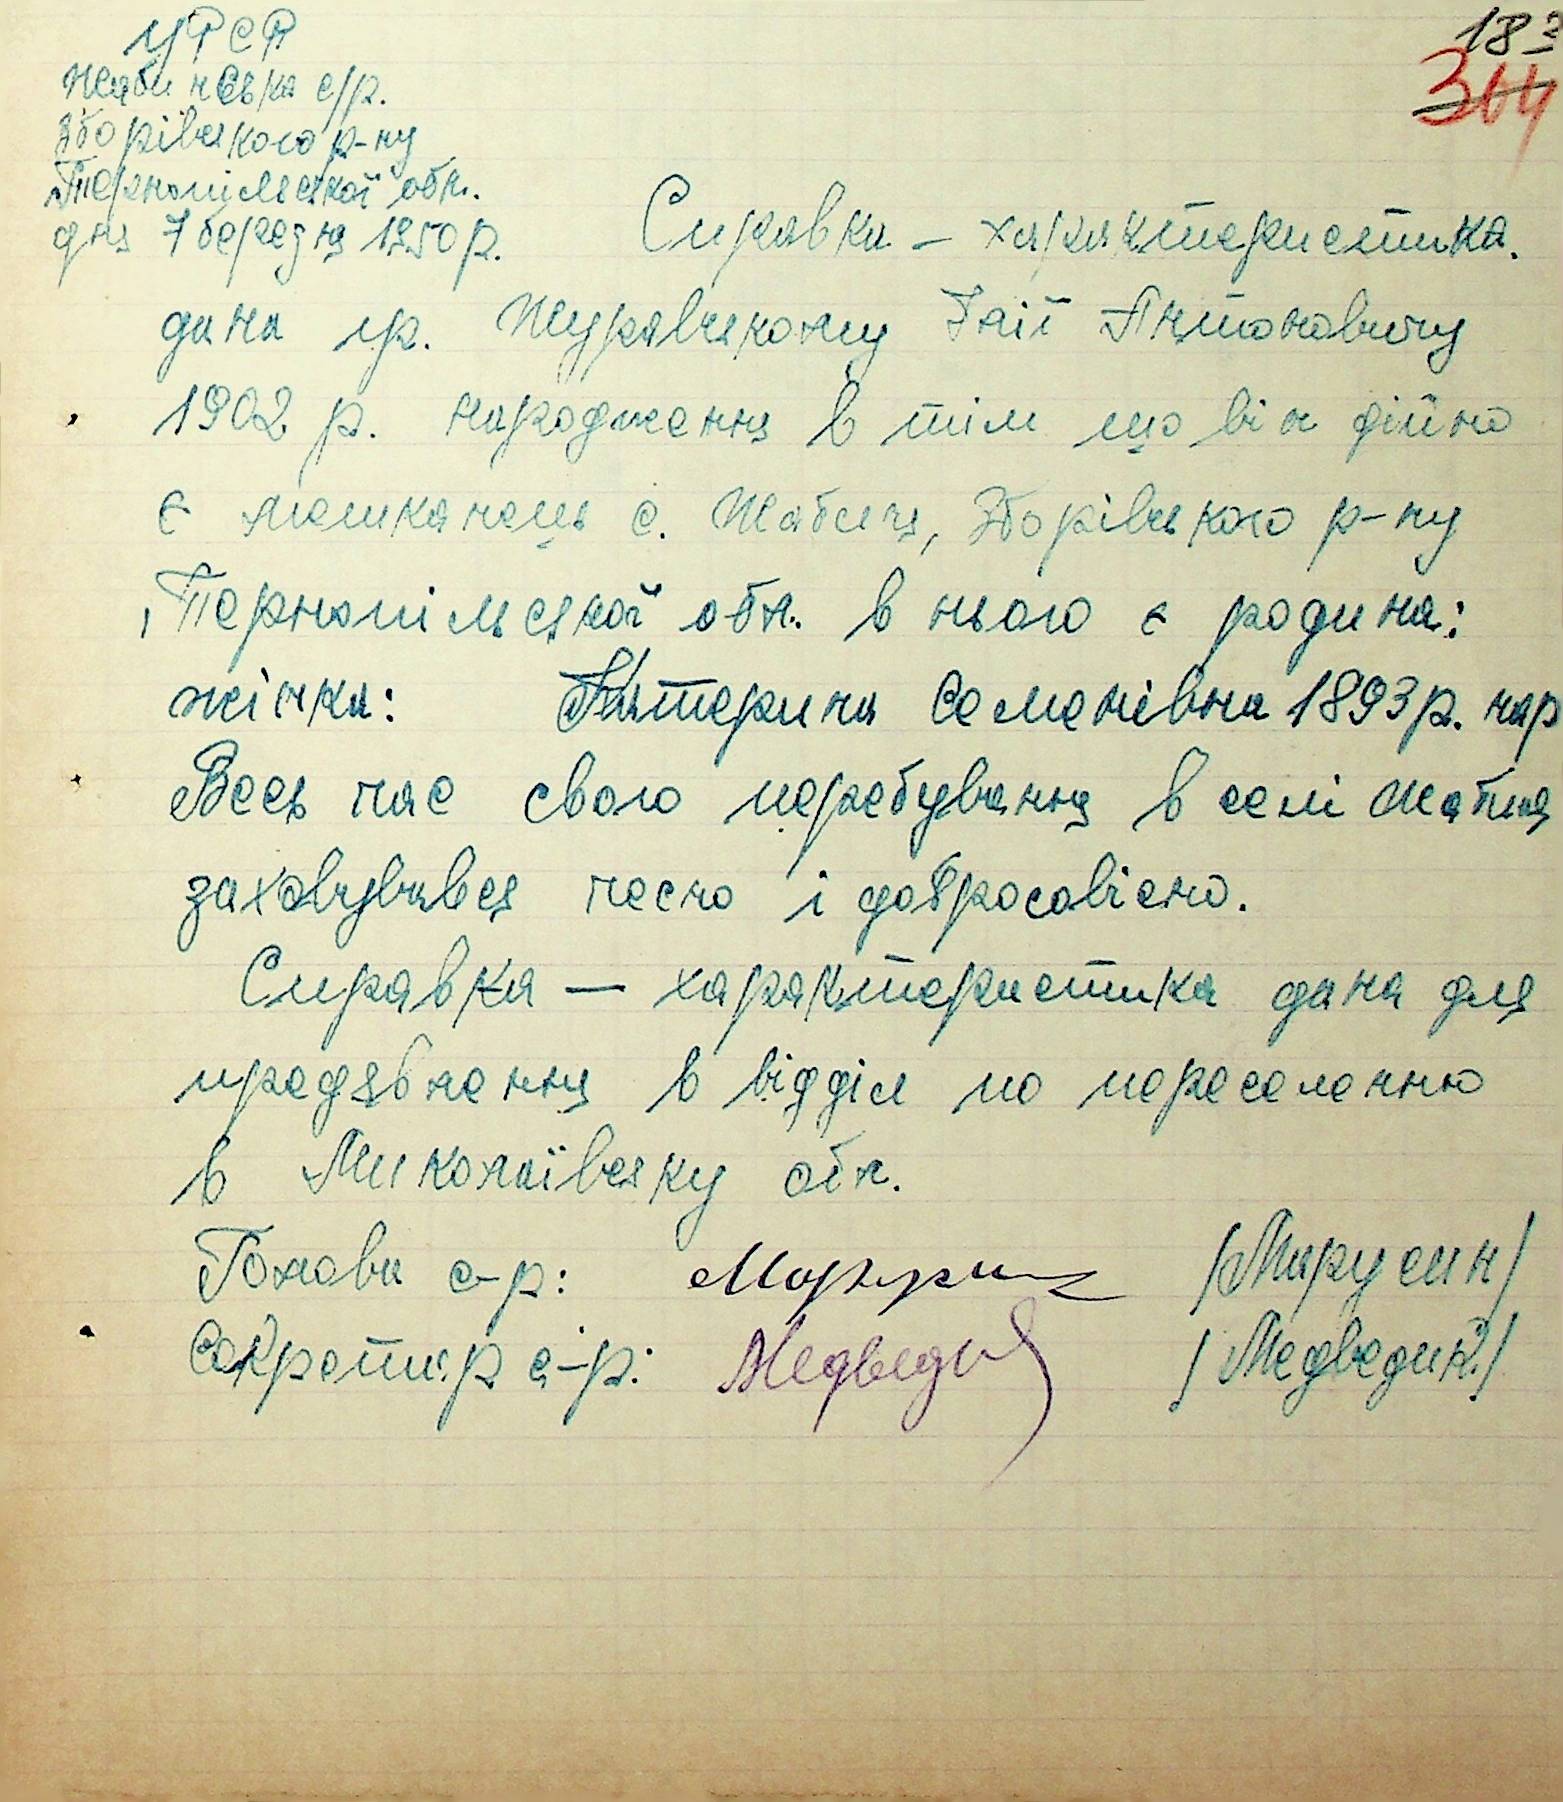 УРСР
Жабинська с/р.
Зборівського р-ну
Тернопільської обл.
дня 7 березня 1950 р.
183
364
Справка – характеристика.
дана гр. Журавському Іллі Антоновичу
1902 р. народження в тім що він дійно
є мешканець с. Жабиня, Зборівського р-ну
Тернопільської обл. в нього є родина:
жінка: Катерина Семенівна 1893 р. нар
Весь час свого перебування в селі Жабиня
заховувався чесно і добросовісно.
Справка — характеристика дана для
предявлення в відділ по переселенню
в Миколаївську обл.
Голова с-р: /Марусин/
Секретар с-р: Медведик /Медведик/